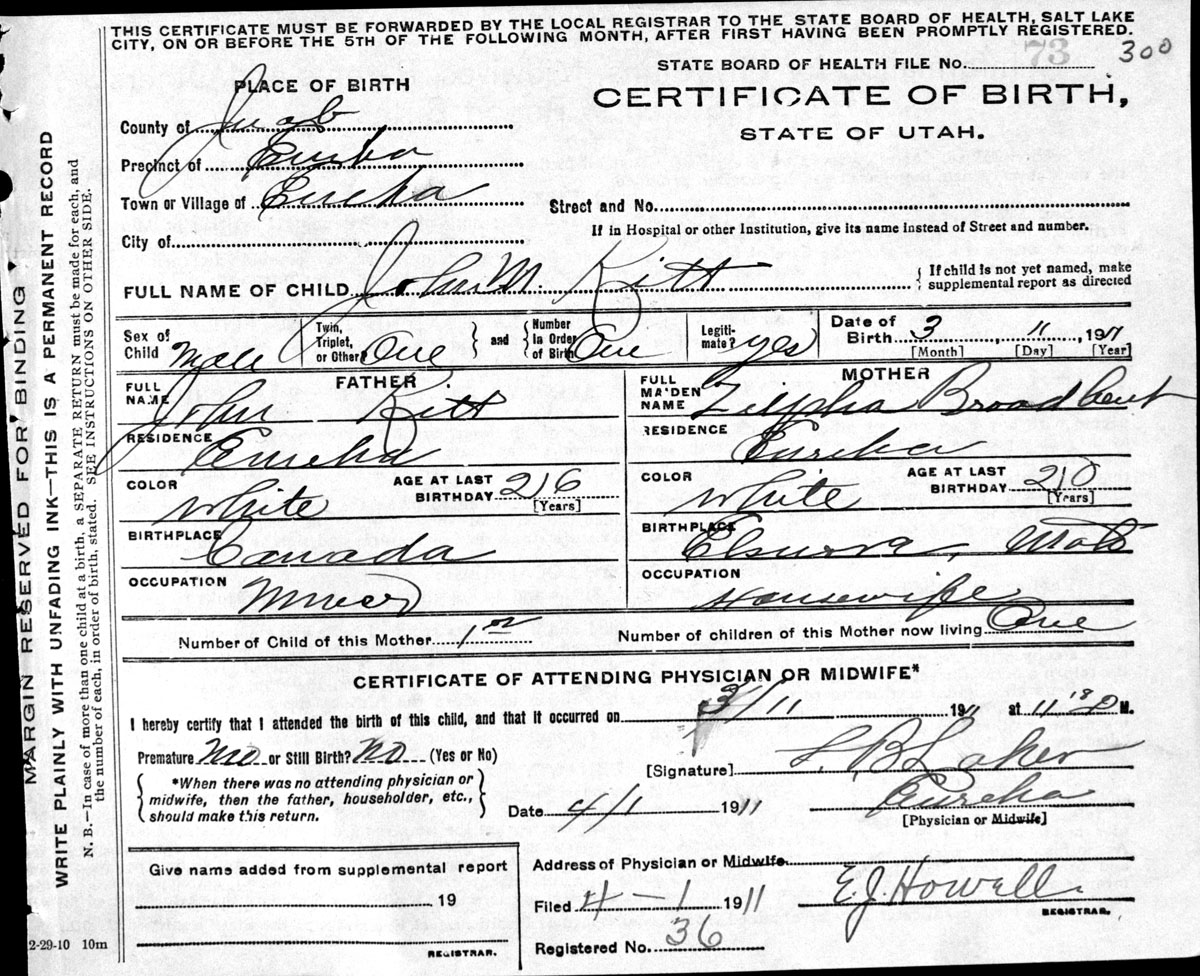 THIS CERTIFICATE MUST BE FORWARDED BY THE LOCAL REGISTRAR TO THE STATE BOARD OF HEALTH, SALT LAKE
CITY, ON OR BEFORE THE 5TH OF THE FOLLOWING MONTH, AFTER FIRST HAVING BEEN PROMPTLY REGISTERED.
STATE BOARD OF HEALTH FILE No. 73 300
PLACE OF BIRTH
CERTIFICATE OF BIRTH,
STATE OF UTAH.
County of Juab
Precinct of Eureka
Town or Village of Eureka
Street and No.
City of
If in Hospital or other Institution, give its name instead of Street and number.
FULL NAME OF CHILD John M. Kitt
{ If child is not yet named, make
supplemental report as directed
Sex of Child Male
Twin, Triplet, or Other? One
and
Number In Order of Birth One
Legiti-mate? yes
Date of Birth 3, 11, 1911
[Month] [Day] [Year]
FATHER
FULL NAME John Kitt
RESIDENCE Eureka
COLOR White
AGE AT LAST BIRTHDAY 26
[Years]
BIRTHPLACE Canada
OCCUPATION Miner
MOTHER
FULL MAIDEN NAME Zilpha Broadbent
RESIDENCE Eureka
COLOR White
AGE AT LAST BIRTHDAY 20
[Years]
BIRTHPLACE
OCCUPATION Housewife
Number of Child of this Mother 1
Number of children of this Mother now living One
CERTIFICATE OF ATTENDING PHYSICIAN OR MIDWIFE*
I hereby certify that I attended the birth of this child, and that it occurred on 3/11 1911 at 11 M.
Premature No or Still Birth? No (Yes or No)
{ *When there was no attending physician or
midwife, then the father, householder, etc.,
should make this return. }
[Signature] Eureka
Date 4/1 1911
[Physician or Midwife]
Give name added from supplemental report
19
REGISTRAR.
Address of Physician or Midwife
Filed 4-1 1911 E.J. Howell
REGISTRAR.
Registered No. 36
2-29-10 10m
MARGIN RESERVED FOR BINDING
WRITE PLAINLY WITH UNFADING INK—THIS IS A PERMANENT RECORD
N. B.—In case of more than one child at a birth, a SEPARATE RETURN must be made for each, and
the number of each, in order of birth, stated. SEE INSTRUCTIONS ON OTHER SIDE.